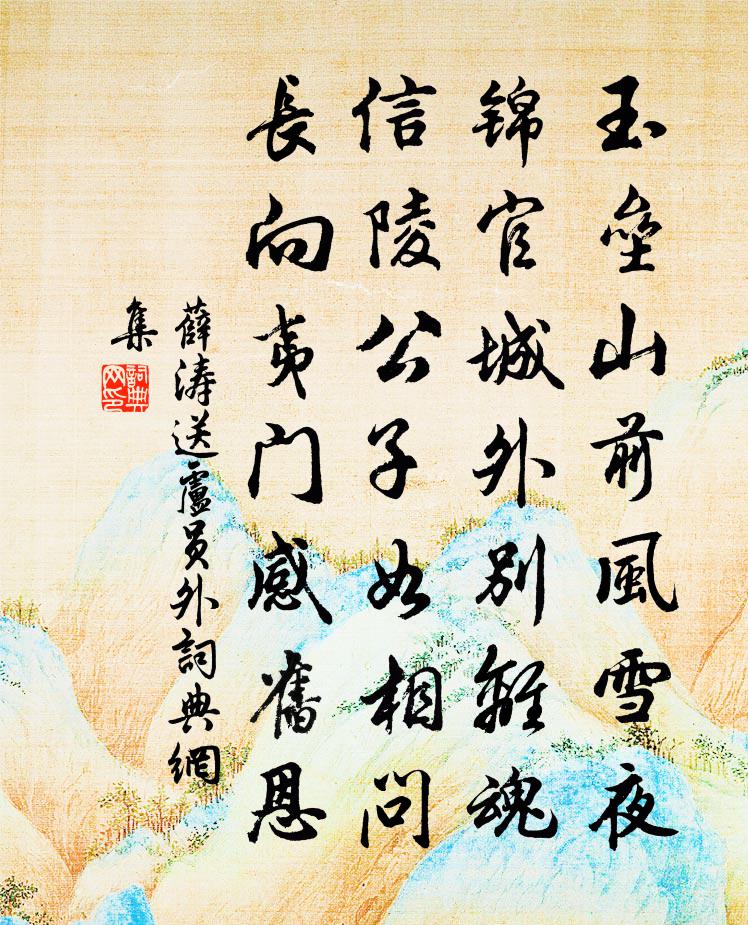 玉壘山前風雪夜
锦官城外別離魂
信陵公子如相問
長向夷門感舊恩
薛涛送盧員外詞典網
集
詞典
网印